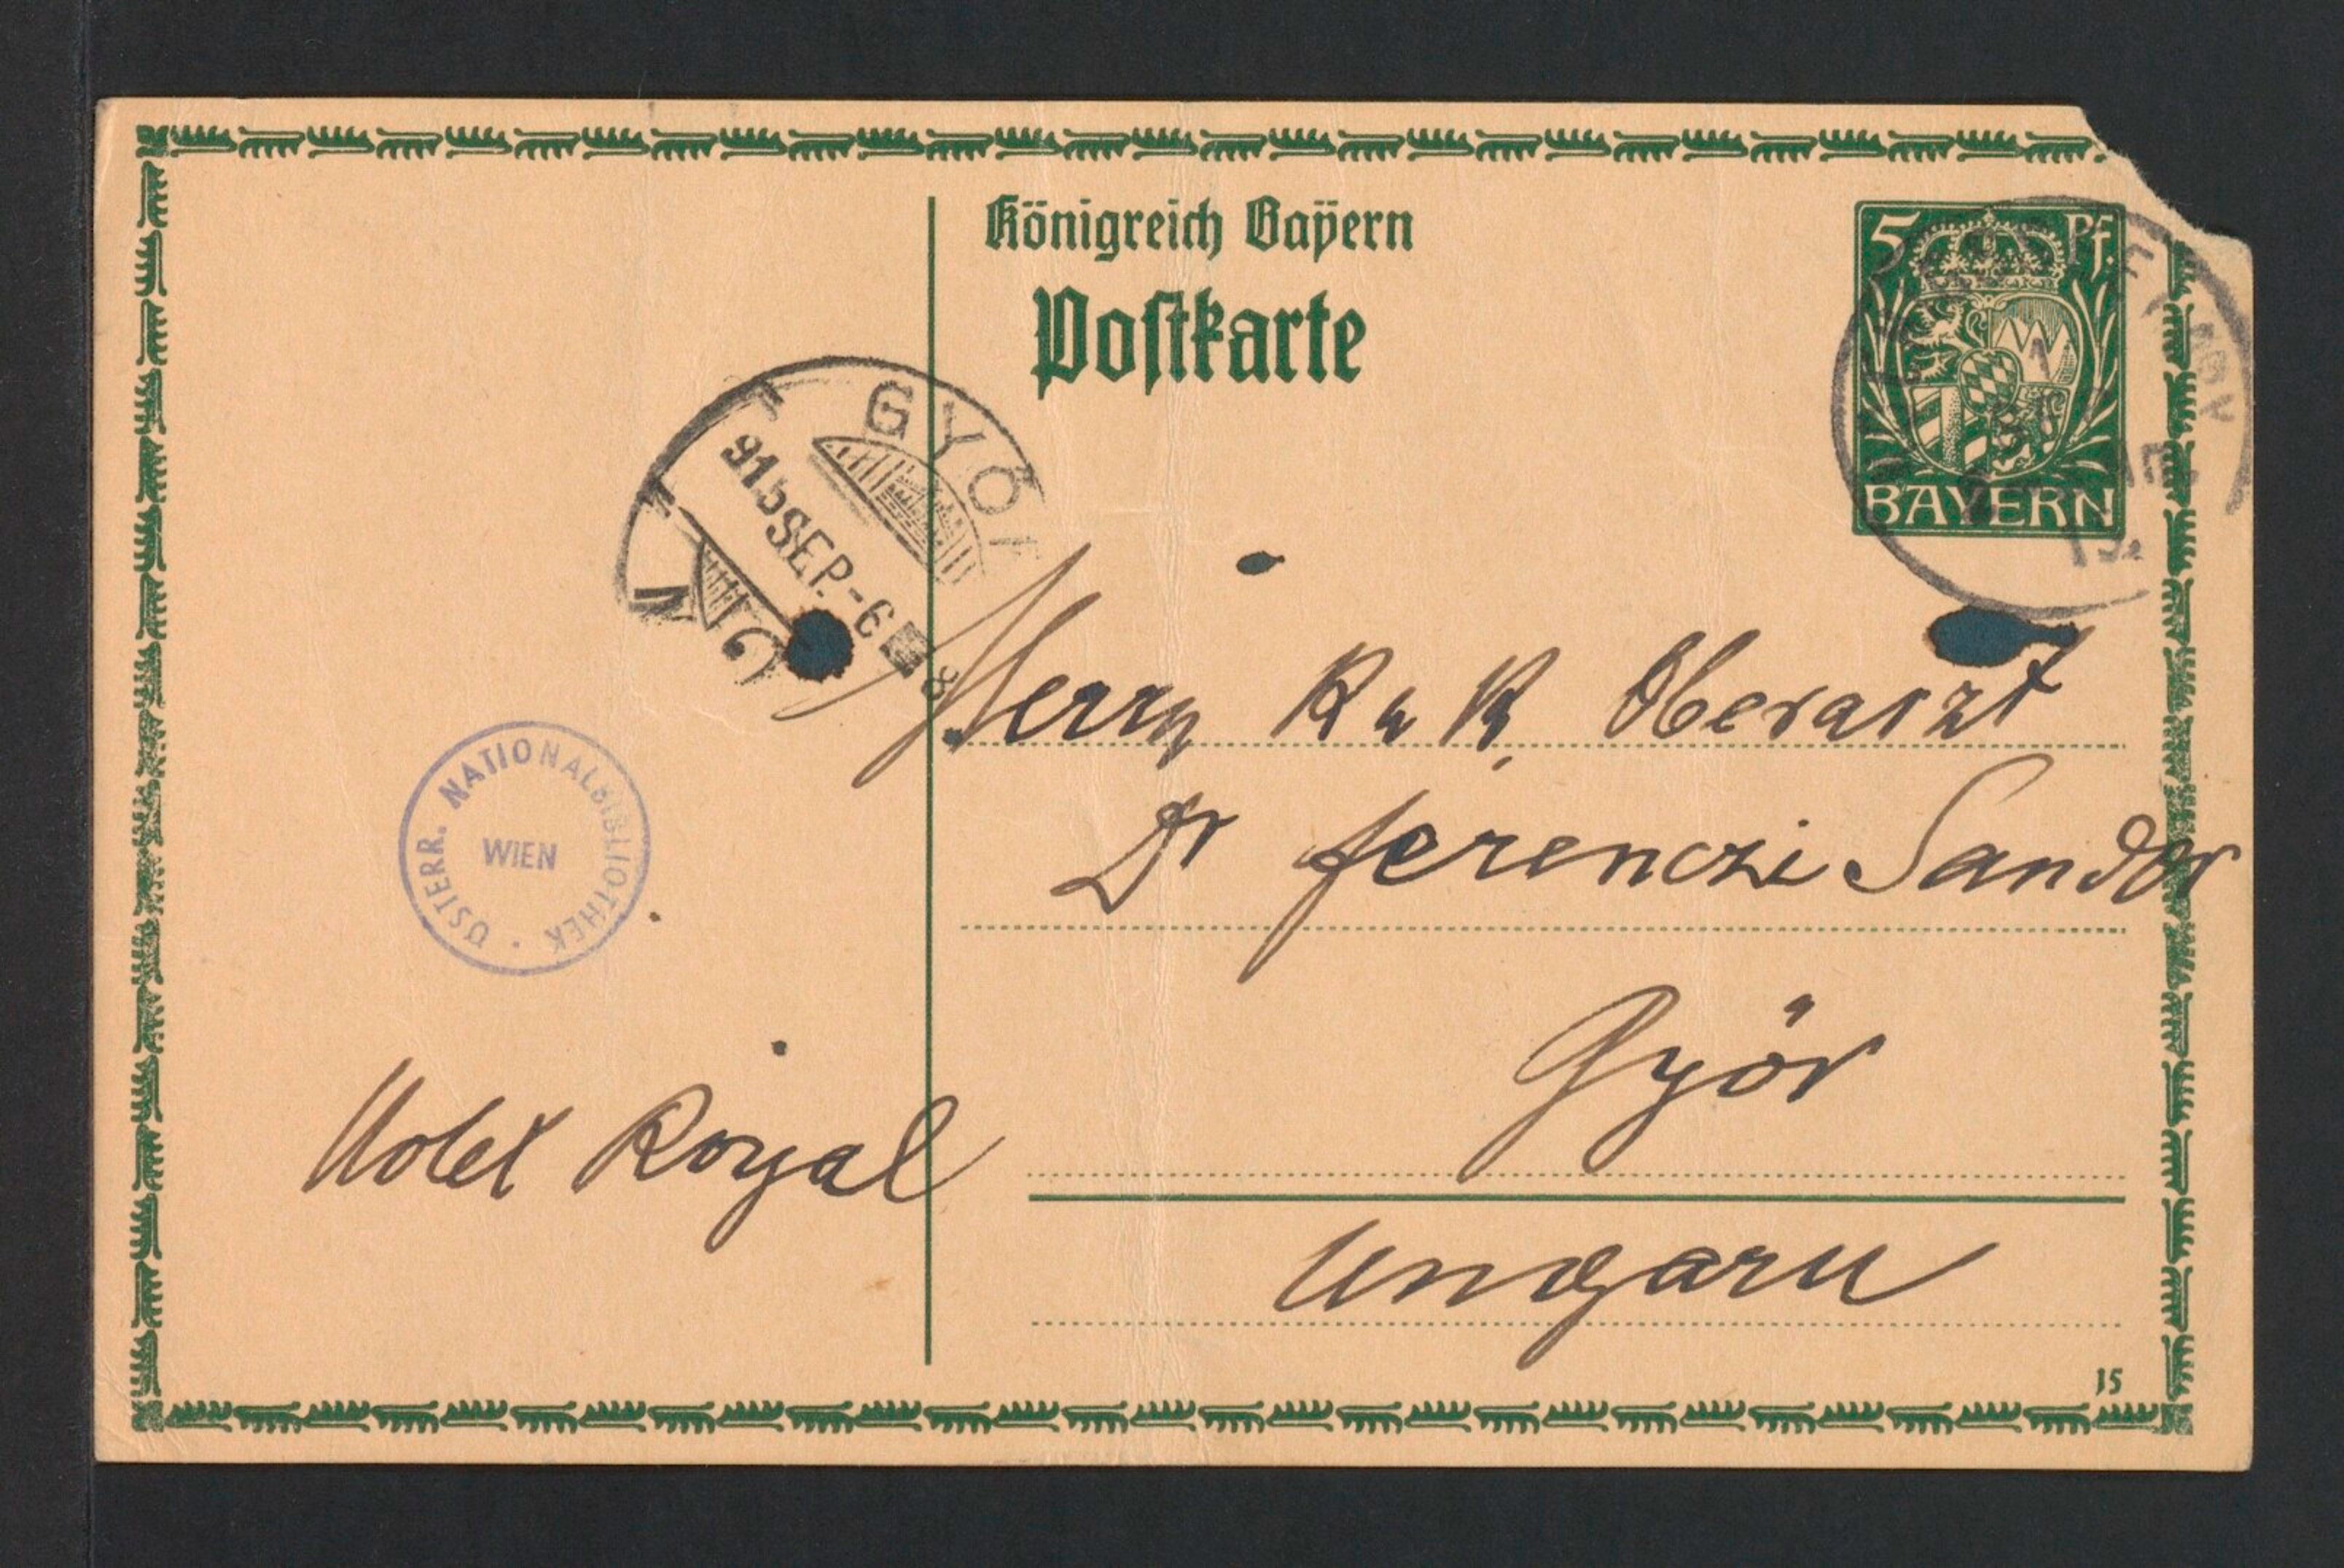 Königreich Bayern
Postkarte
5 Pf.
BAYERN
GYŐR
915 SEP. -6
8
Herrn K u K Oberarzt
Dr Ferenczi Sandor
Győr
Hotel Royal
Ungarn
ÖSTERR. NATIONALBIBLIOTHEK
WIEN
15